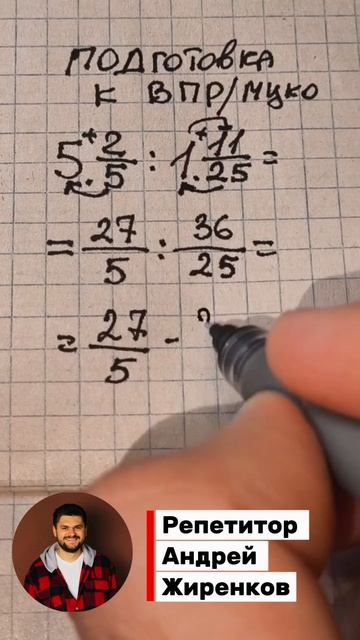 ПОДГОТОВКА
К ВПР/МЦКО
5 2/5 : 1 11/25 =
= 27/5 : 36/25 =
= 27/5 -
Репетитор
Андрей
Жиренков